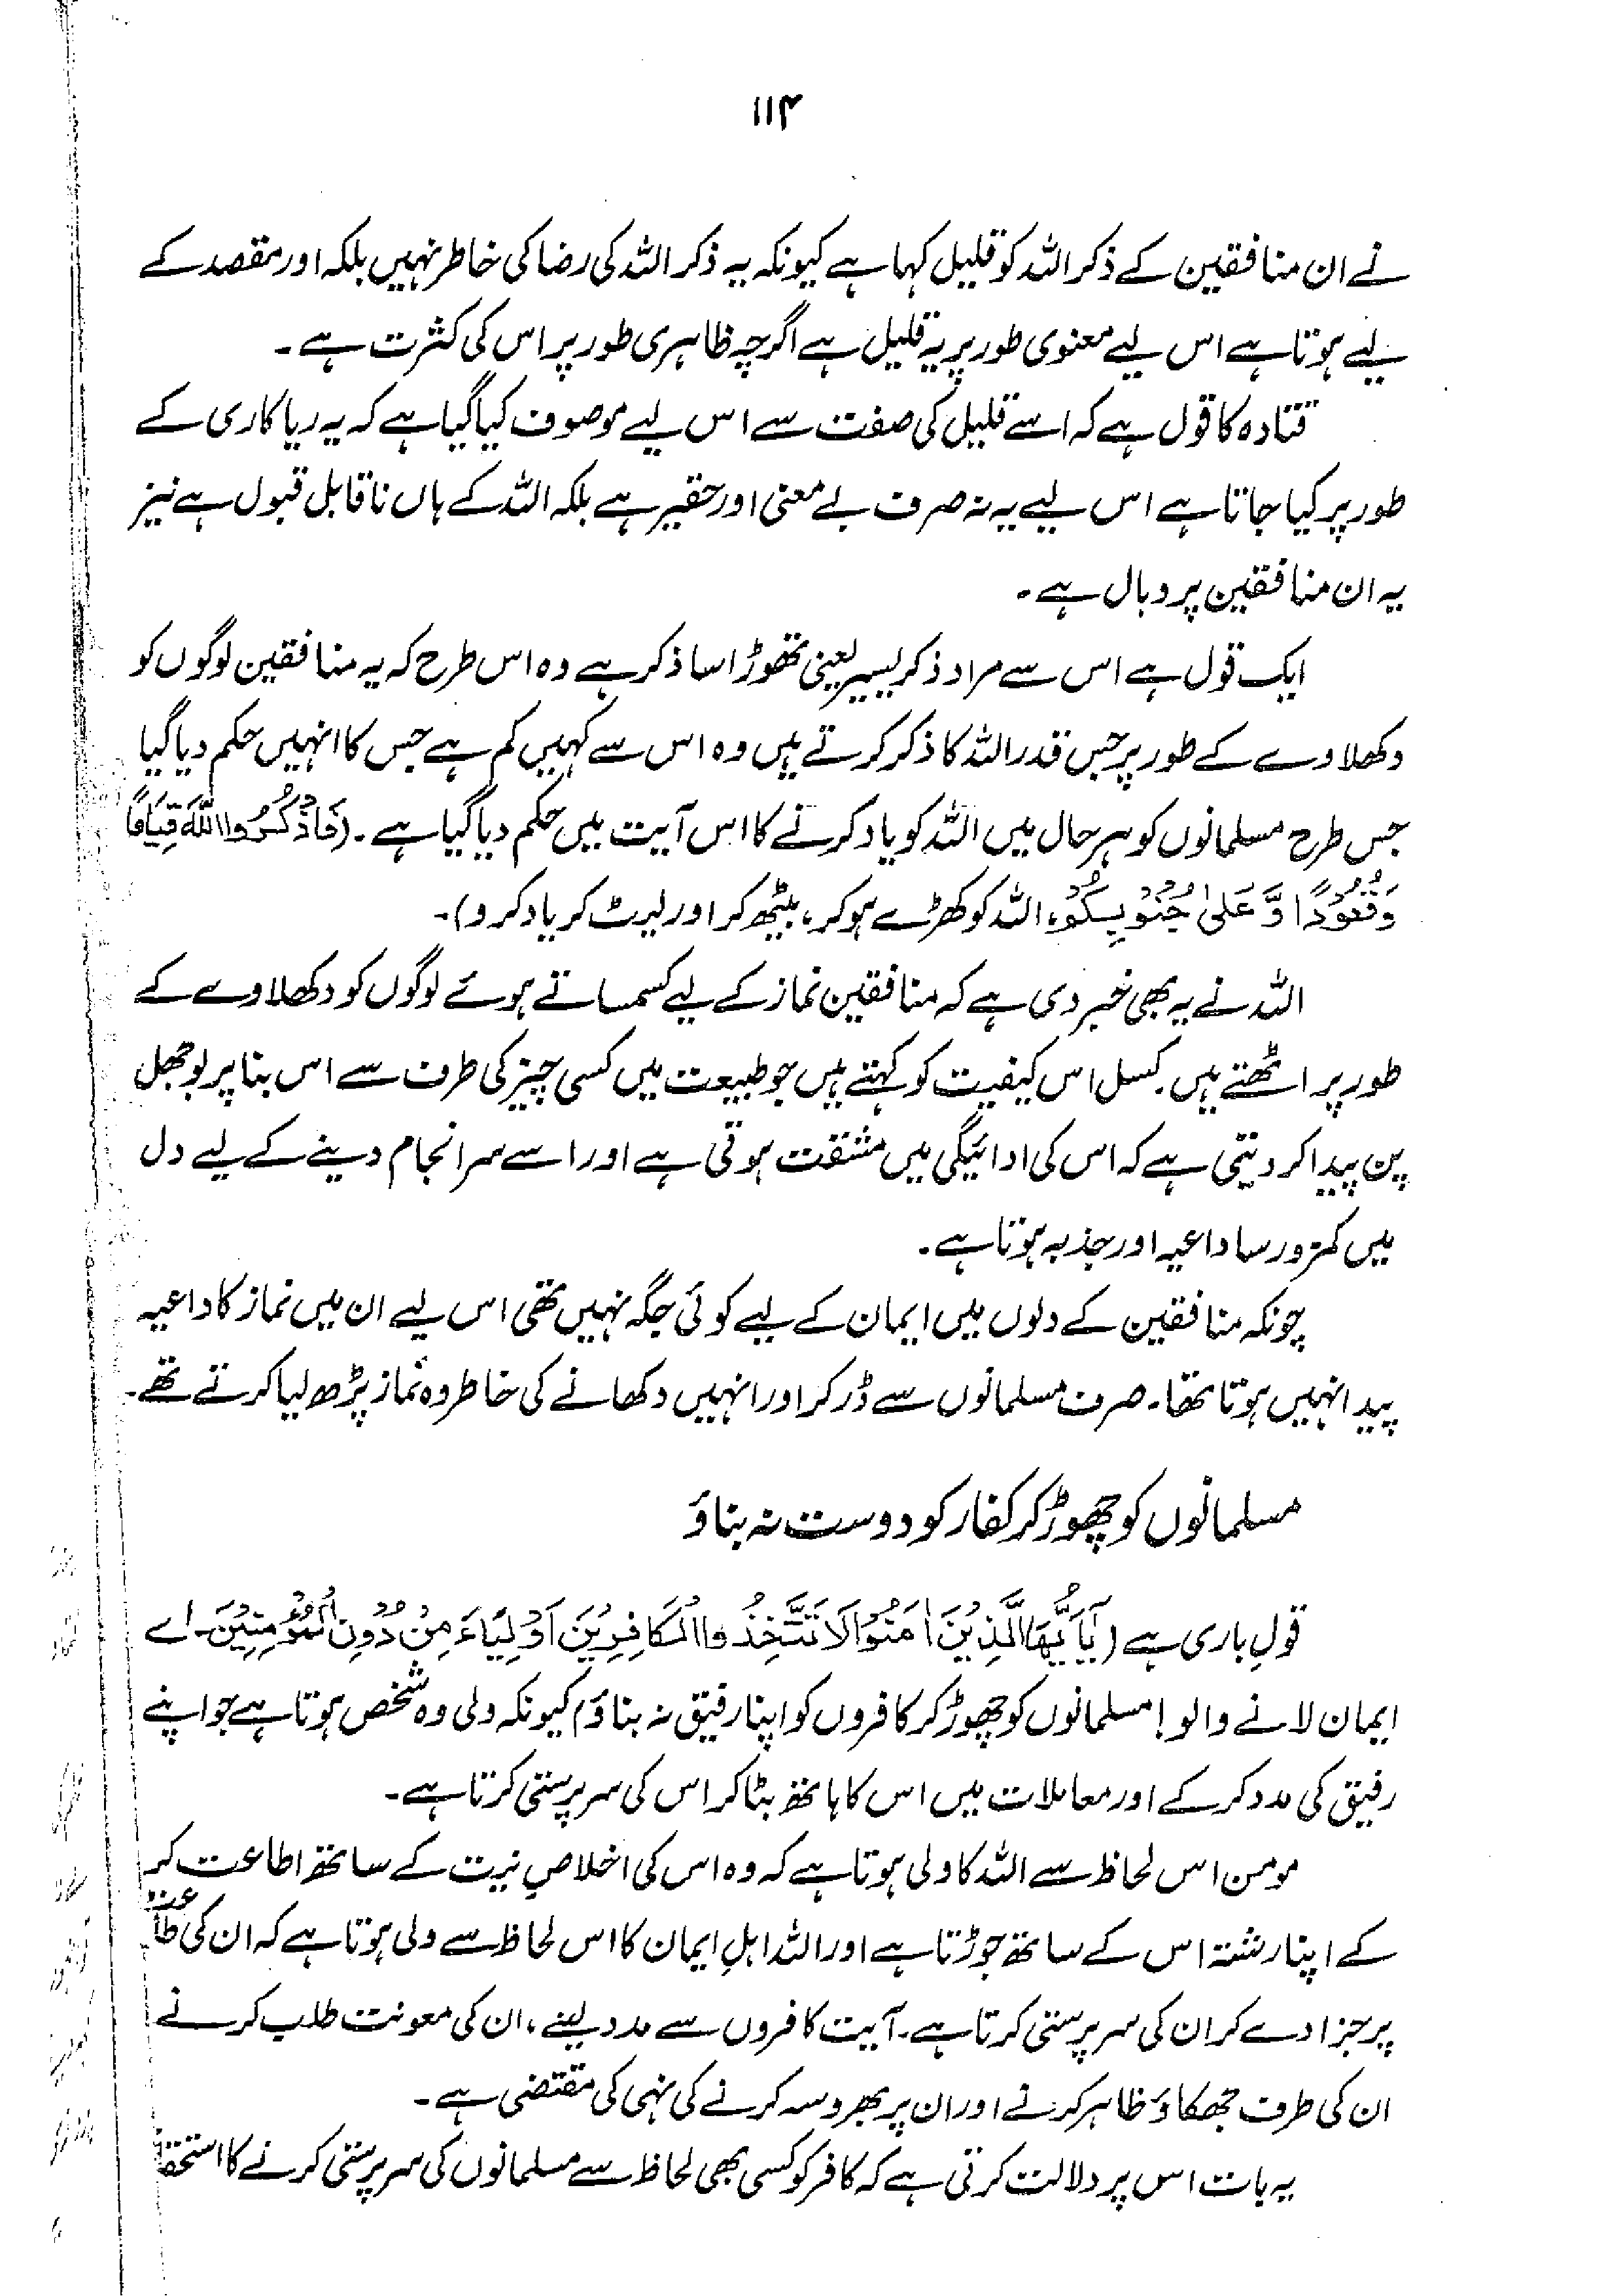 ۱۱۴
نے ان منافقین کے ذکر اللہ کو قلیل کہا ہے کیونکہ یہ ذکر اللہ کی رضا کی خاطر نہیں بلکہ اور مقصد کے
لیے ہوتا ہے اس لیے معنوی طور پر یہ قلیل ہے اگرچہ ظاہری طور پر اس کی کثرت ہے۔
قتادہ کا قول ہے کہ اسے قلیل کی صفت سے اس لیے موصوف کیا گیا ہے کہ یہ ریاکاری کے
طور پر کیا جاتا ہے اس لیے یہ نہ صرف بے معنی اور حقیر ہے بلکہ اللہ کے ہاں ناقابل قبول ہے نیز
یہ ان منافقین پر وبال ہے۔
ایک قول ہے اس سے مراد ذکر یسیر یعنی تھوڑا سا ذکر ہے وہ اس طرح کہ یہ منافقین لوگوں کو
دکھلاوے کے طور پر جس قدر اللہ کا ذکر کرتے ہیں وہ اس سے کہیں کم ہے جس کا انہیں حکم دیا گیا
جس طرح مسلمانوں کو ہر حال میں اللہ کو یاد کرنے کا اس آیت میں حکم دیا گیا ہے۔ (فَاذْكُرُوا اللّٰهَ قِيَامًا
وَّقُعُوْدًا وَّ عَلٰى جُنُوْبِكُمْ، اللہ کو کھڑے ہو کر، بیٹھ کر اور لیٹ کر یاد کرو)۔
اللہ نے یہ بھی خبر دی ہے کہ منافقین نماز کے لیے کسمساتے ہوئے لوگوں کو دکھلاوے کے
طور پر اٹھتے ہیں۔ کسل اس کیفیت کو کہتے ہیں جو طبیعت میں کسی چیز کی طرف سے اس بنا پر بوجھل
پن پیدا کر دیتی ہے کہ اس کی ادائیگی میں مشقت ہوتی ہے اور اسے سرانجام دینے کے لیے دل
میں کمزور سا داعیہ اور جذبہ ہوتا ہے۔
چونکہ منافقین کے دلوں میں ایمان کے لیے کوئی جگہ نہیں تھی اس لیے ان میں نماز کا داعیہ
پیدا نہیں ہوتا تھا۔ صرف مسلمانوں سے ڈر کر اور انہیں دکھانے کی خاطر وہ نماز پڑھ لیا کرتے تھے۔
مسلمانوں کو چھوڑ کر کفار کو دوست نہ بناؤ
قولِ باری ہے (يَآ اَيُّهَا الَّذِيْنَ اٰمَنُوْا لَا تَتَّخِذُوا الْكَافِرِيْنَ اَوْلِيَآءَ مِنْ دُوْنِ الْمُؤْمِنِيْنَ۔ اے
ایمان لانے والو! مسلمانوں کو چھوڑ کر کافروں کو اپنا رفیق نہ بناؤ) کیونکہ ولی وہ شخص ہوتا ہے جو اپنے
رفیق کی مدد کر کے اور معاملات میں اس کا ہاتھ بٹا کر اس کی سرپرستی کرتا ہے۔
مومن اس لحاظ سے اللہ کا ولی ہوتا ہے کہ وہ اس کی اخلاصِ نیت کے ساتھ اطاعت کر
کے اپنا رشتہ اس کے ساتھ جوڑتا ہے اور اللہ اہلِ ایمان کا اس لحاظ سے ولی ہوتا ہے کہ ان کی طاعت
پر جزا دے کر ان کی سرپرستی کرتا ہے۔ آیت کافروں سے مدد لینے، ان کی معونت طلب کرنے
ان کی طرف جھکاؤ ظاہر کرنے اور ان پر بھروسہ کرنے کی نہی کی مقتضی ہے۔
یہ بات اس پر دلالت کرتی ہے کہ کافر کو کسی بھی لحاظ سے مسلمانوں کی سرپرستی کرنے کا